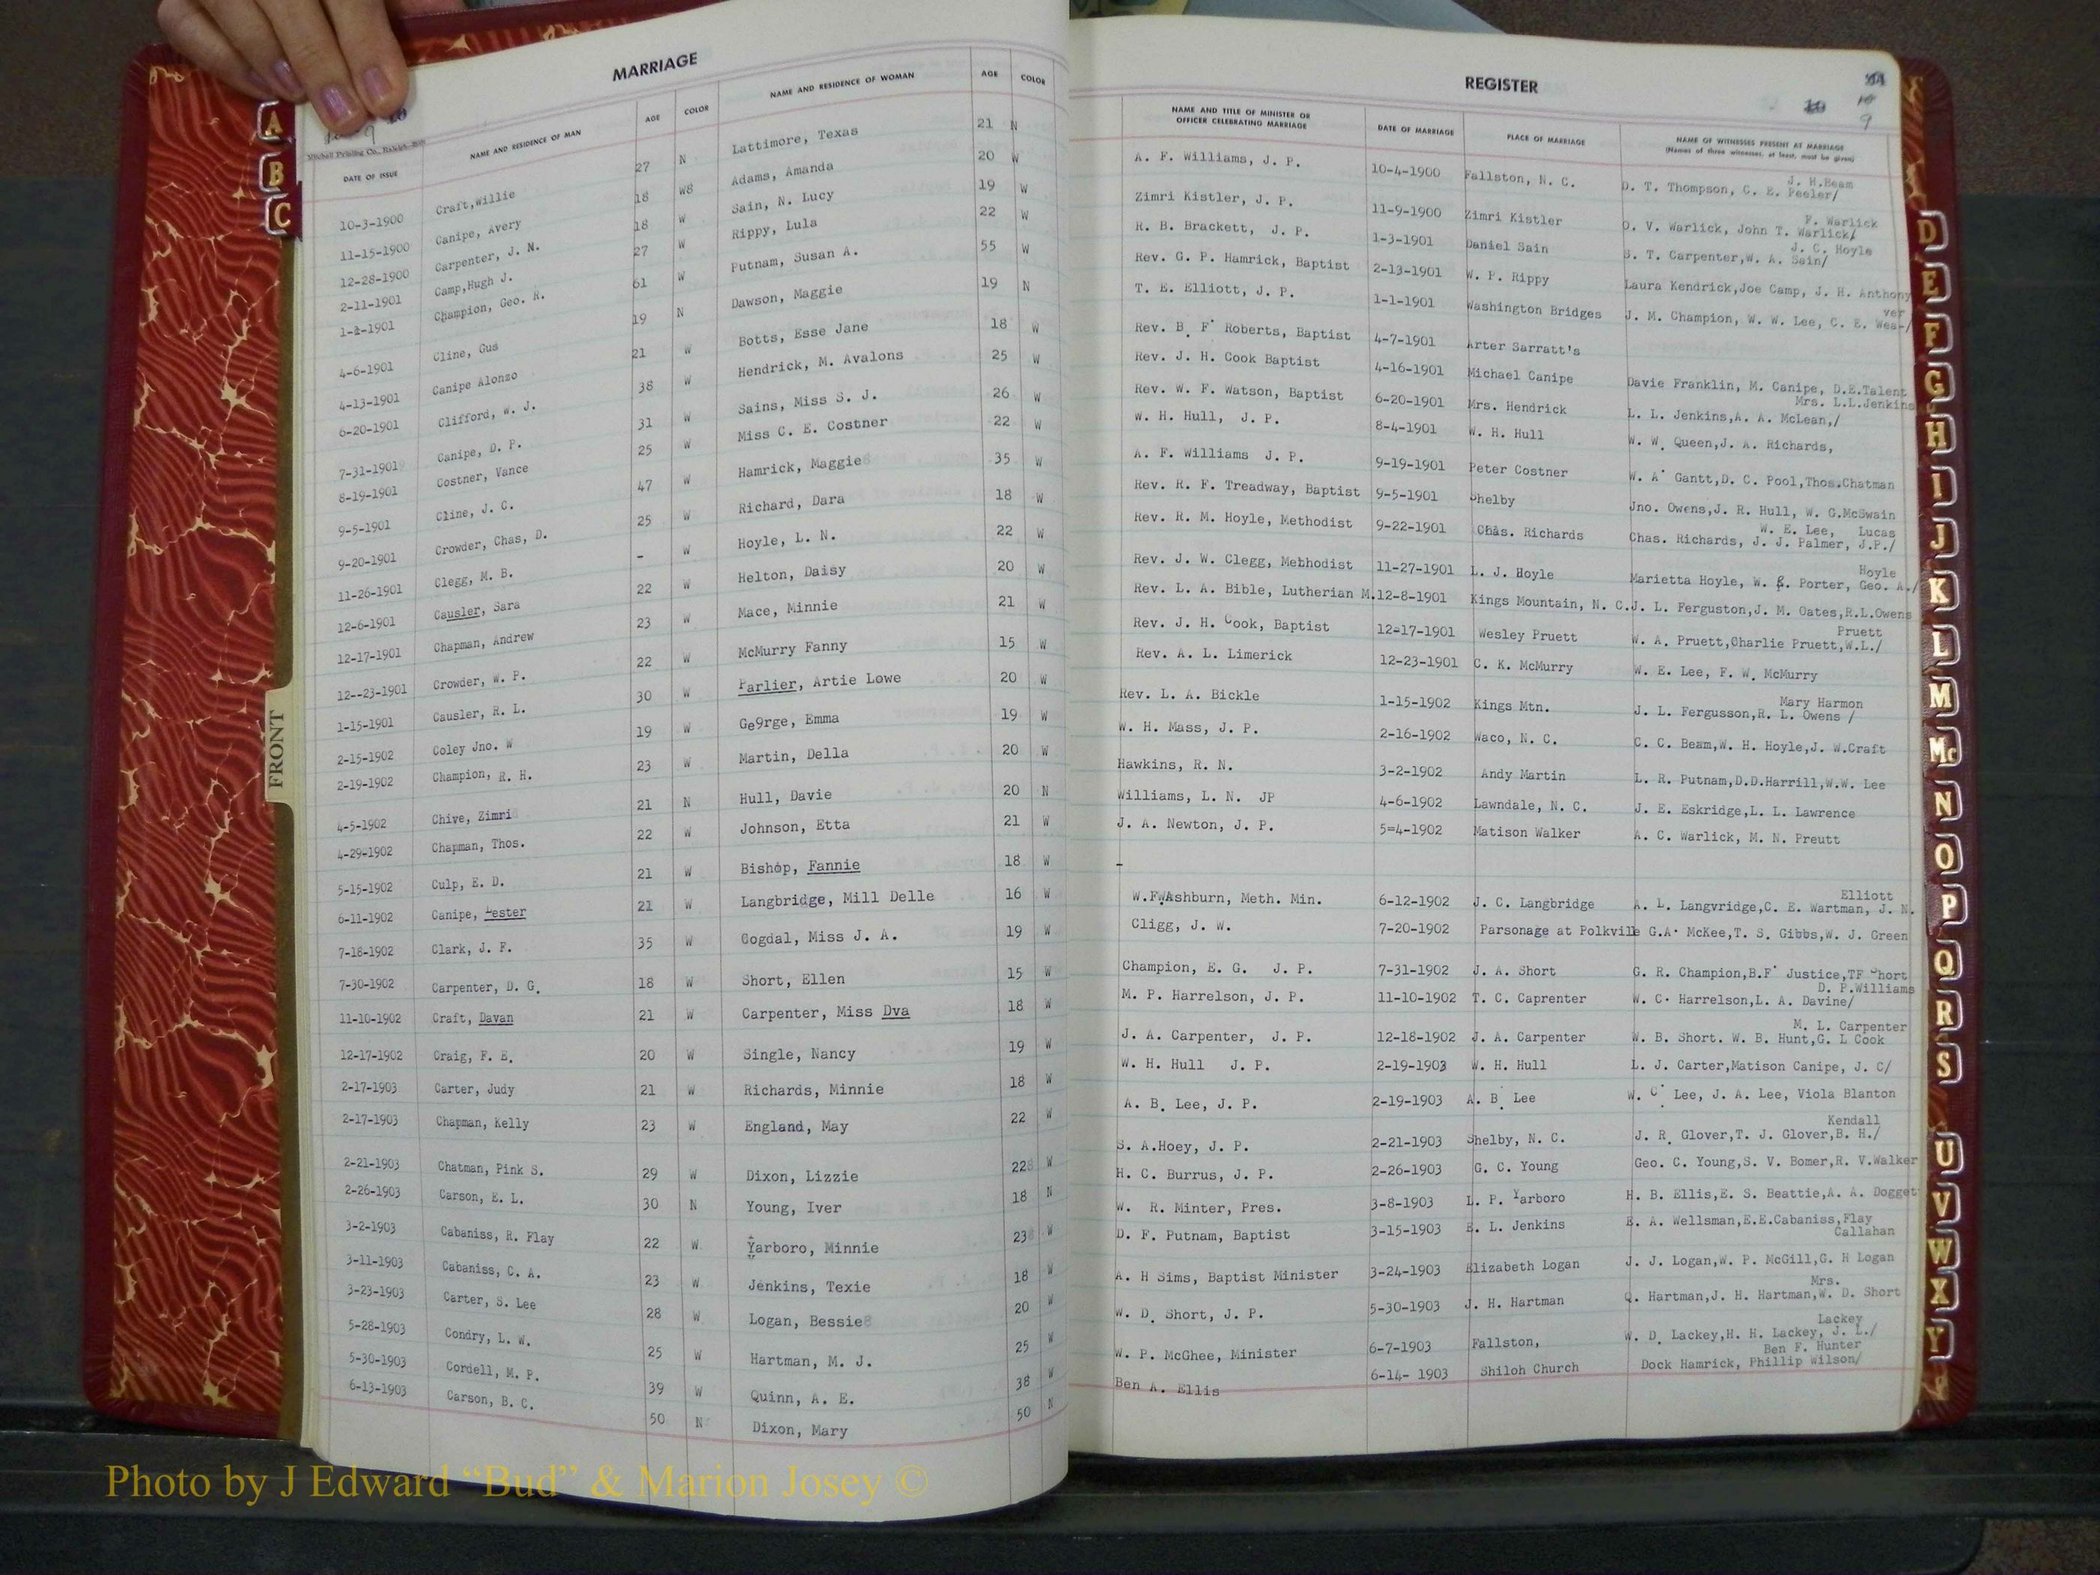 MARRIAGE
10
9
Mitchell Printing Co., Raleigh,
DATE OF ISSUE NAME AND RESIDENCE OF MAN AGE COLOR NAME AND RESIDENCE OF WOMAN AGE COLOR
10-3-1900 Craft,Willie 27 N Lattimore, Texas 21 N
11-15-1900 Canipe, Avery 18 W8 Adams, Amanda 20 W
12-28-1900 Carpenter, J. N. 18 W Sain, N. Lucy 19 W
2-11-1901 Camp,Hugh J. 27 W Rippy, Lula 22 W
1-2-1901 Champion, Geo. R. 61 W Putnam, Susan A. 55 W
4-6-1901 Cline, Gus 19 N Dawson, Maggie 19 N
4-13-1901 Canipe Alonzo 21 W Botts, Esse Jane 18 W
6-20-1901 Clifford, W. J. 38 W Hendrick, M. Avalons 25 W
7-31-1901 Canipe, D. P. 31 W Sains, Miss S. J. 26 W
8-19-1901 Costner, Vance 25 W Miss C. E. Costner 22 W
9-5-1901 Cline, J. C. 47 W Hamrick, Maggie 35 W
9-20-1901 Crowder, Chas, D. 25 W Richard, Dara 18 W
11-26-1901 Clegg, M. B. - W Hoyle, L. N. 22 W
12-6-1901 Causler, Sara 22 W Helton, Daisy 20 W
12-17-1901 Chapman, Andrew 23 W Mace, Minnie 21 W
12--23-1901 Crowder, W. P. 22 W McMurry Fanny 15 W
1-15-1901 Causler, R. L. 30 W Parlier, Artie Lowe 20 W
2-15-1902 Coley Jno. W 19 W Ge9rge, Emma 19 W
2-19-1902 Champion, R. H. 23 W Martin, Della 20 W
4-5-1902 Chive, Zimri 21 N Hull, Davie 20 N
4-29-1902 Chapman, Thos. 22 W Johnson, Etta 21 W
5-15-1902 Culp, E. D. 21 W Bishop, Fannie 18 W
6-11-1902 Canipe, Lester 21 W Langbridge, Mill Delle 16 W
7-18-1902 Clark, J. F. 35 W Cogdal, Miss J. A. 19 W
7-30-1902 Carpenter, D. G. 18 W Short, Ellen 15 W
11-10-1902 Craft, Davan 21 W Carpenter, Miss Dva 18 W
12-17-1902 Craig, F. E. 20 W Single, Nancy 19 W
2-17-1903 Carter, Judy 21 W Richards, Minnie 18 W
2-17-1903 Chapman, Kelly 23 W England, May 22 W
2-21-1903 Chatman, Pink S. 29 W Dixon, Lizzie 22 W
2-26-1903 Carson, E. L. 30 N Young, Iver 18 N
3-2-1903 Cabaniss, R. Flay 22 W Yarboro, Minnie 23 W
3-11-1903 Cabaniss, C. A. 23 W Jenkins, Texie 18 W
3-23-1903 Carter, S. Lee 28 W Logan, Bessie 20 W
5-28-1903 Condry, L. W. 25 W Hartman, M. J. 25 W
5-30-1903 Cordell, M. P. 39 W Quinn, A. E. 38 W
6-13-1903 Carson, B. C. 50 N Dixon, Mary 50 N
REGISTER
10
10
9
NAME AND TITLE OF MINISTER OR OFFICER CELEBRATING MARRIAGE DATE OF MARRIAGE PLACE OF MARRIAGE NAME OF WITNESSES PRESENT AT MARRIAGE
(Names of three witnesses, at least, must be given)
J. H.Beam
A. F. Williams, J. P. 10-4-1900 Fallston, N. C. D. T. Thompson, C. E. Peeler/
F. Warlick
Zimri Kistler, J. P. 11-9-1900 Zimri Kistler O. V. Warlick, John T. Warlick/
J. C. Hoyle
R. B. Brackett, J. P. 1-3-1901 Daniel Sain S. T. Carpenter,W. A. Sain/
Rev. G. P. Hamrick, Baptist 2-13-1901 W. P. Rippy Laura Kendrick,Joe Camp, J. H. Anthony
ver
T. E. Elliott, J. P. 1-1-1901 Washington Bridges J. M. Champion, W. W. Lee, C. E. Wea-/
Rev. B. F. Roberts, Baptist 4-7-1901 Arter Sarratt's
Rev. J. H. Cook Baptist 4-16-1901 Michael Canipe Davie Franklin, M. Canipe, D.E.Talent
Mrs. L.L.Jenkins
Rev. W. F. Watson, Baptist 6-20-1901 Mrs. Hendrick L. L. Jenkins,A. A. McLean,/
W. H. Hull, J. P. 8-4-1901 W. H. Hull W. W. Queen,J. A. Richards,
A. F. Williams J. P. 9-19-1901 Peter Costner W. A. Gantt,D. C. Pool,Thos.Chatman
Rev. R. F. Treadway, Baptist 9-5-1901 Shelby Jno. Owens,J. R. Hull, W. G.McSwain
W. E. Lee, Lucas
Rev. R. M. Hoyle, Methodist 9-22-1901 Chas. Richards Chas. Richards, J. J. Palmer, J.P./
Hoyle
Rev. J. W. Clegg, Methodist 11-27-1901 L. J. Hoyle Marietta Hoyle, W. E. Porter, Geo. A./
Rev. L. A. Bible, Lutherian M. 12-8-1901 Kings Mountain, N. C. J. L. Ferguston,J. M. Oates,R.L.Owens
Pruett
Rev. J. H. Cook, Baptist 12-17-1901 Wesley Pruett W. A. Pruett,Charlie Pruett,W.L./
Rev. A. L. Limerick 12-23-1901 C. K. McMurry W. E. Lee, F. W. McMurry
Mary Harmon
Rev. L. A. Bickle 1-15-1902 Kings Mtn. J. L. Fergusson,R. L. Owens /
W. H. Mass, J. P. 2-16-1902 Waco, N. C. C. C. Beam,W. H. Hoyle,J. W.Craft
Hawkins, R. N. 3-2-1902 Andy Martin L. R. Putnam,D.D.Harrill,W.W. Lee
Williams, L. N. JP 4-6-1902 Lawndale, N. C. J. E. Eskridge,L. L. Lawrence
J. A. Newton, J. P. 5=4-1902 Matison Walker A. C. Warlick, M. N. Preutt
-
Elliott
W.FWAshburn, Meth. Min. 6-12-1902 J. C. Langbridge A. L. Langvridge,C. E. Wartman, J. N.
Cligg, J. W. 7-20-1902 Parsonage at Polkville G.A. McKee,T. S. Gibbs,W. J. Green
Champion, E. G. J. P. 7-31-1902 J. A. Short G. R. Champion,B.F. Justice,TF Short
D. P.Williams
M. P. Harrelson, J. P. 11-10-1902 T. C. Caprenter W. C. Harrelson,L. A. Davine/
M. L. Carpenter
J. A. Carpenter, J. P. 12-18-1902 J. A. Carpenter W. B. Short. W. B. Hunt,G. L Cook
W. H. Hull J. P. 2-19-1903 W. H. Hull L. J. Carter,Matison Canipe, J. C/
A. B. Lee, J. P. 2-19-1903 A. B. Lee W. C. Lee, J. A. Lee, Viola Blanton
Kendall
S. A.Hoey, J. P. 2-21-1903 Shelby, N. C. J. R. Glover,T. J. Glover,B. H./
H. C. Burrus, J. P. 2-26-1903 G. C. Young Geo. C. Young,S. V. Bomer,R. V.Walker
W. R. Minter, Pres. 3-8-1903 L. P. Yarboro H. B. Ellis,E. S. Beattie,A. A. Dogget
D. F. Putnam, Baptist 3-15-1903 E. L. Jenkins E. A. Wellsman,E.E.Cabaniss,Flay
Callahan
A. H Sims, Baptist Minister 3-24-1903 Elizabeth Logan J. J. Logan,W. P. McGill,G. H Logan
Mrs.
W. D. Short, J. P. 5-30-1903 J. H. Hartman Q. Hartman,J. H. Hartman,W. D. Short
Lackey
W. P. McGhee, Minister 6-7-1903 Fallston, W. D. Lackey,H. H. Lackey, J. L./
Ben F. Hunter
Ben A. Ellis 6-14- 1903 Shiloh Church Dock Hamrick, Phillip Wilson/
A
B
C
FRONT
D
E
F
G
H
I
J
K
L
M
Mc
N
O
P
Q
R
S
U
V
W
X
Y
Photo by J Edward “Bud” & Marion Josey ©